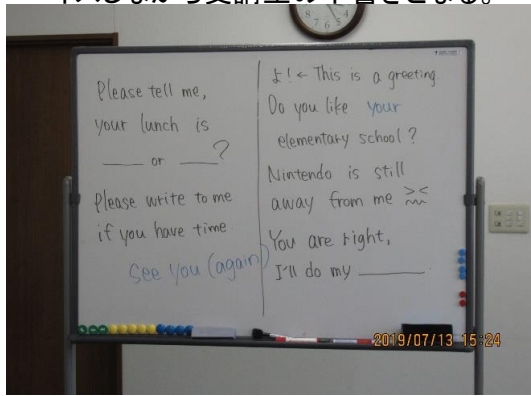 イスしながら受講生の下書きとなる。
Please tell me,
your lunch is
____ or ____?
Please write to me
if you have time
See you (again)
よ! ← This is a greeting
Do you like your
elementary school?
Nintendo is still
away from me ><
You are right,
I'll do my ______
2019/07/13 15:24